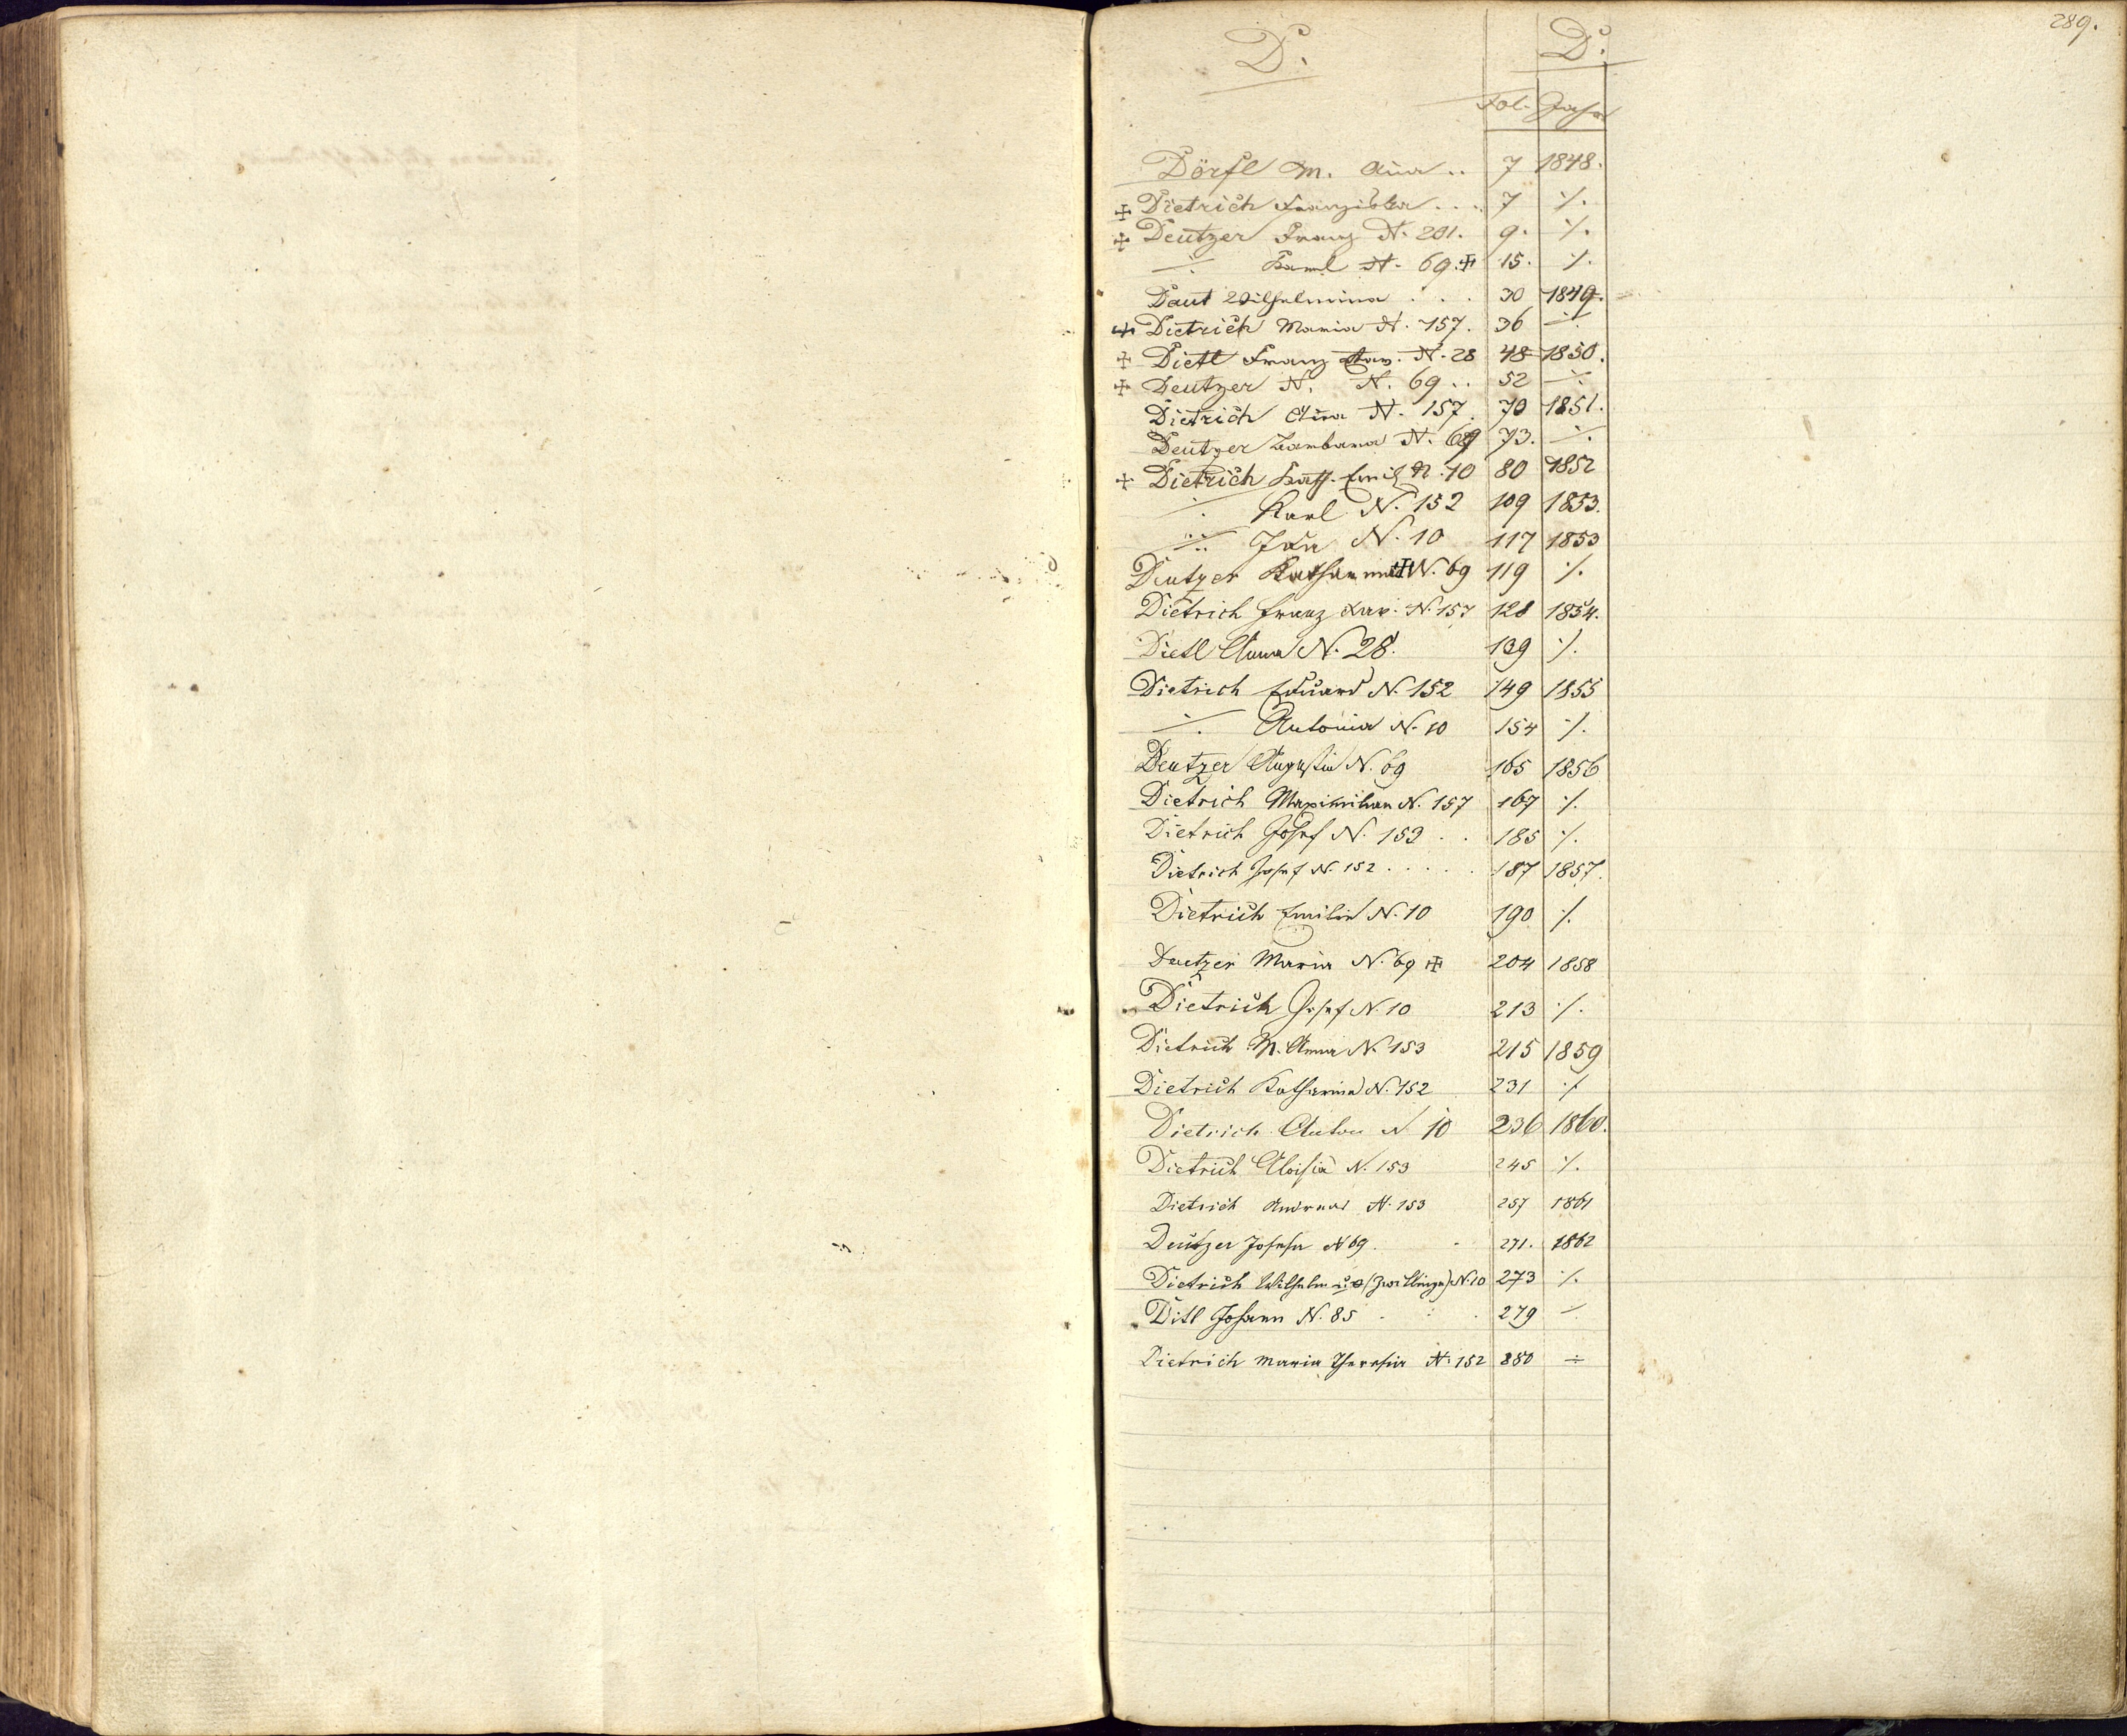 289.
D. D.
Fol. Jahr
Dörfl M. Anna .. 7 1848.
✠ Dietrich Franziska ... 7 ·/.
✠ Deutzer Franz N. 201. 9. ·/.
·/. Karl N. 69. ✠ 15. ·/.
Daut Wilhelmina . . . 30 1849.
✠ Dietrich Maria N. 157. 36 ·/.
✠ Dietl Franz Xav. N. 28 48 1850.
✠ Deutzer N. N. 69 .. 52 ·/.
Dietrich Anna N. 157. 70 1851.
Deutzer Barbara N. 69 73. ·/.
✠ Dietrich Kath. N. 10 80 1852
·/. Karl N. 152 109 1853.
·/. Ida N. 10 117 1853
Deutzer Katharina ✠ N. 69 119 ·/.
Dietrich Franz Xav. N. 157 128 1854.
Dietl Anna N. 28. 139 ·/.
Dietrich Eduard N. 152 149 1855
·/. Antonia N. 10 154 ·/.
Deutzer Augustin N. 69 165 1856
Dietrich Maximilian N. 157 167 ·/.
Dietrich Josef N. 153 . . 185 ·/.
Dietrich Josef N. 152 . . . . . 187 1857.
Dietrich Emilie N. 10 190 ·/.
Deutzer Maria N. 69 ✠ 204 1858
Dietrich Josef N. 10 213 ·/.
Dietrich M. Anna N. 153 215 1859
Dietrich Katharina N. 152 231 ·/.
Dietrich Anton N 10 236 1860.
Dietrich Aloisia N. 153 245 ·/.
Dietrich Andreas N. 153 257 1861
Deutzer Josefa N 69. 271. 1862
Dietrich Wilhelm (Zwillinge) N. 10 273 ·/.
Ditl Johann N. 85 . . . 279 ·/.
Dietrich Maria Theresia N. 152 280 ÷